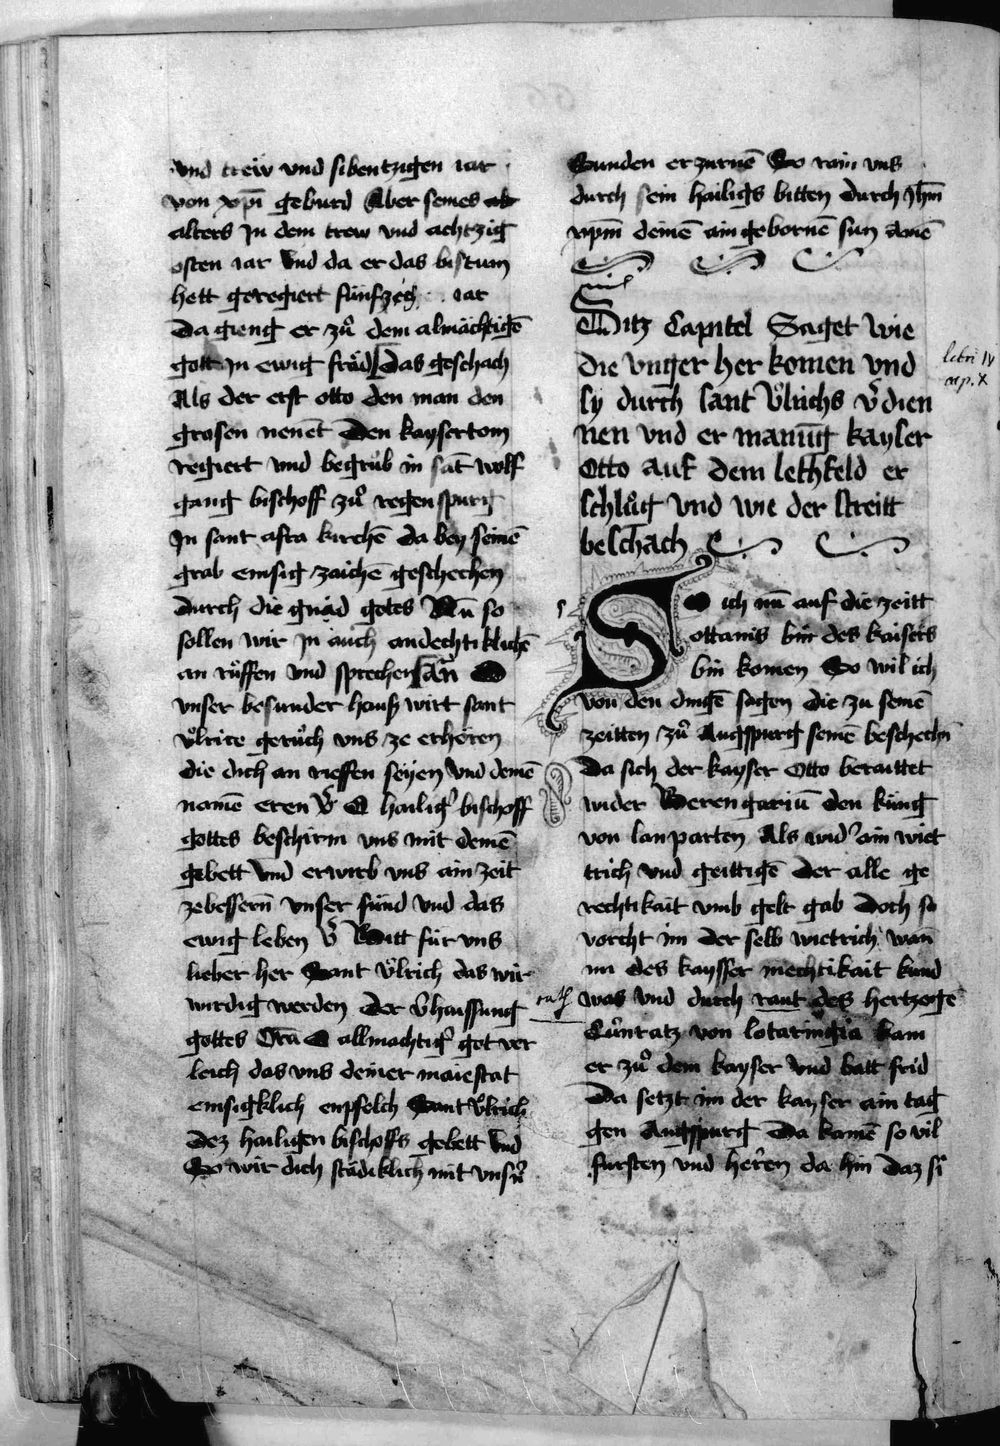 und treẃ vnd sibentzigen iar
von xp̄i geburd Aber seines
alters Jn dem trew vnd achtzig
osten iar vnd da er das bistum
hett geregiert fúnfzeg iar
Da gieng er zů dem almächtigē
gott Jn ewig fräd Das geschach
Als der erst otto den man den
grosen nenēt Den kaysertom
regiert vnd begrůb in sāt wolf
gang bischoff zů regenspurg
Jn sant afra kirchē da bey seinē
grab emsig zaichē geschechen
durch die gnad gotes Nū so
sollen wir Jn auch andechtiklichē
an růffen vnd sprechen O
vnser besunder hauß wirt sant
vͦlrice gerůch vns ze erhören
die dich an rieffen seyen vnd deinē
namē eren v̄ O hailig' bischoff
gottes beschirm vns mit deinē
gebett vnd erwirb vns ain zeit
zebessern̄ vnser sünd vnd das
ewig leben v̄ Bitt für vns
lieber her Sant vͦlrich das wir
wirdig werden Der v̄haissung
gottes Orā O allmachtig' got ver
leich das vns deiner maiestat
emsigklich enpfelch Sant vͦlrich
Dez hailigen bischoffs gebett vnd
So wir dich städiklich mit vnsn̄
Sunden erzurnē So rain vns
durch sein hailigs bitten durch Jhm̄
xpm̄ deinē aingebornē sun amē
Ditz Capitel Saget wie
die vnger her komen vnd
sy durch sant vͦlrichs v̄dien
nen vnd er manūg kayser
Otto auf dem lechfeld er
schlůg vnd wie der streitt
beschach
libri IV
cap. X
So ich nū auf die zeitt
ottanis bin des kaisers
bin komen So wil ich
von den dingē sagen die zu seinē
zeitten zů Augspurg seinē beschechn̄
Da sich der kayser Otto beraittet
wider Berengariū den küng
von lanparten Als wid' ain wiet
trich vnd geittigē Der alle ge
rechtikait vmb gelt gab Doch so
vorcht im der selb wietrich wan̄
im des kaysser mechtikait kund
rath
was vnd durch raut des hertzogē
Cůnratz von lotaringia kam
er zů dem kayser vnd batt frid
Da setzt im der kayser ain tag
gen Augspurg Da kamē so vil
fursten vnd herren da hin daz si